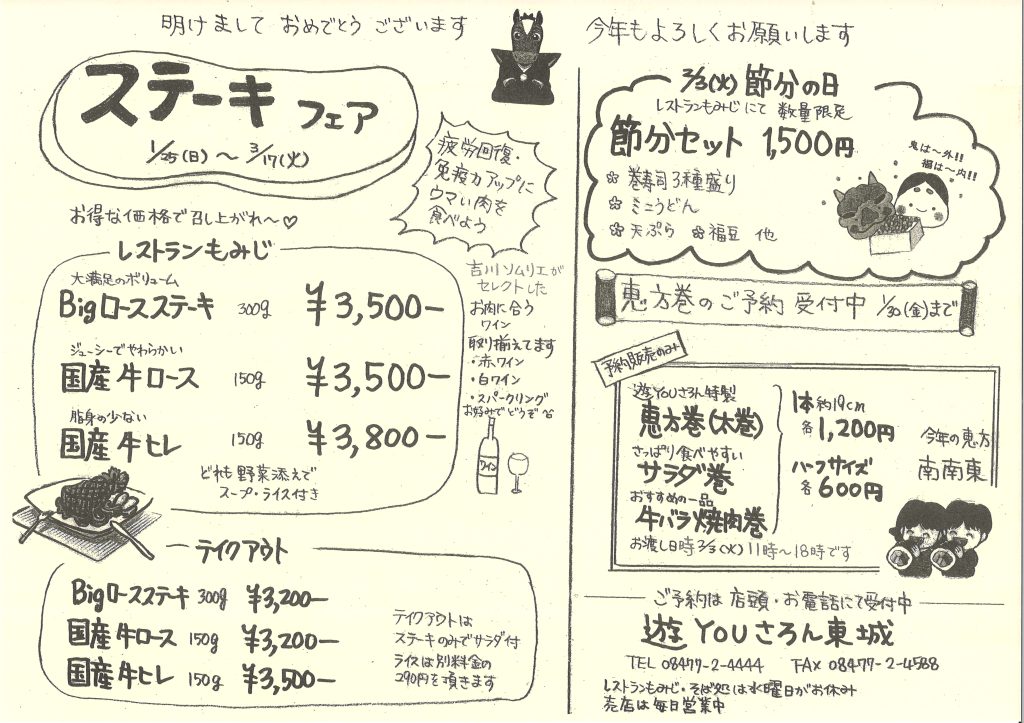 明けまして おめでとう ございます
今年もよろしくお願いします
ステーキ フェア
1/25(日)〜3/17(火)
疲労回復・
免疫力アップに
ウマい肉を
食べよう
お得な価格で召し上がれ〜♡
レストランもみじ
大満足のボリューム
Bigロースステーキ 300g ¥3,500−
ジューシーでやわらかい
国産牛ロース 150g ¥3,500−
脂身の少ない
国産牛ヒレ 150g ¥3,800−
どれも野菜添えで
スープ・ライス付き
吉川ソムリエが
セレクトした
お肉に合う
ワイン
取り揃えてます
・赤ワイン
・白ワイン
・スパークリング
お好みでどうぞ
ワイン
テイクアウト
Bigロースステーキ 300g ¥3,200−
国産牛ロース 150g ¥3,200−
国産牛ヒレ 150g ¥3,500−
テイクアウトは
ステーキのみでサラダ付
ライスは別料金の
290円を頂きます
2/3(火) 節分の日
レストランもみじにて 数量限定
節分セット 1,500円
巻寿司3種盛り
ミニうどん
天ぷら 福豆 他
鬼は〜外!!
福は〜内!!
恵方巻のご予約受付中 1/30(金)まで
予約販売のみ
遊YOUさろん特製
恵方巻(太巻)
さっぱり食べやすい
サラダ巻
おすすめの一品
牛バラ焼肉巻
1本 約19cm
各1,200円
ハーフサイズ
各600円
今年の恵方
南南東
お渡し日時2/3(火)11時〜18時です
ご予約は 店頭・お電話にて受付中
遊YOUさろん東城
TEL 08477-2-4444 FAX 08477-2-4588
レストランもみじ・そば処は水曜日がお休み
売店は毎日営業中